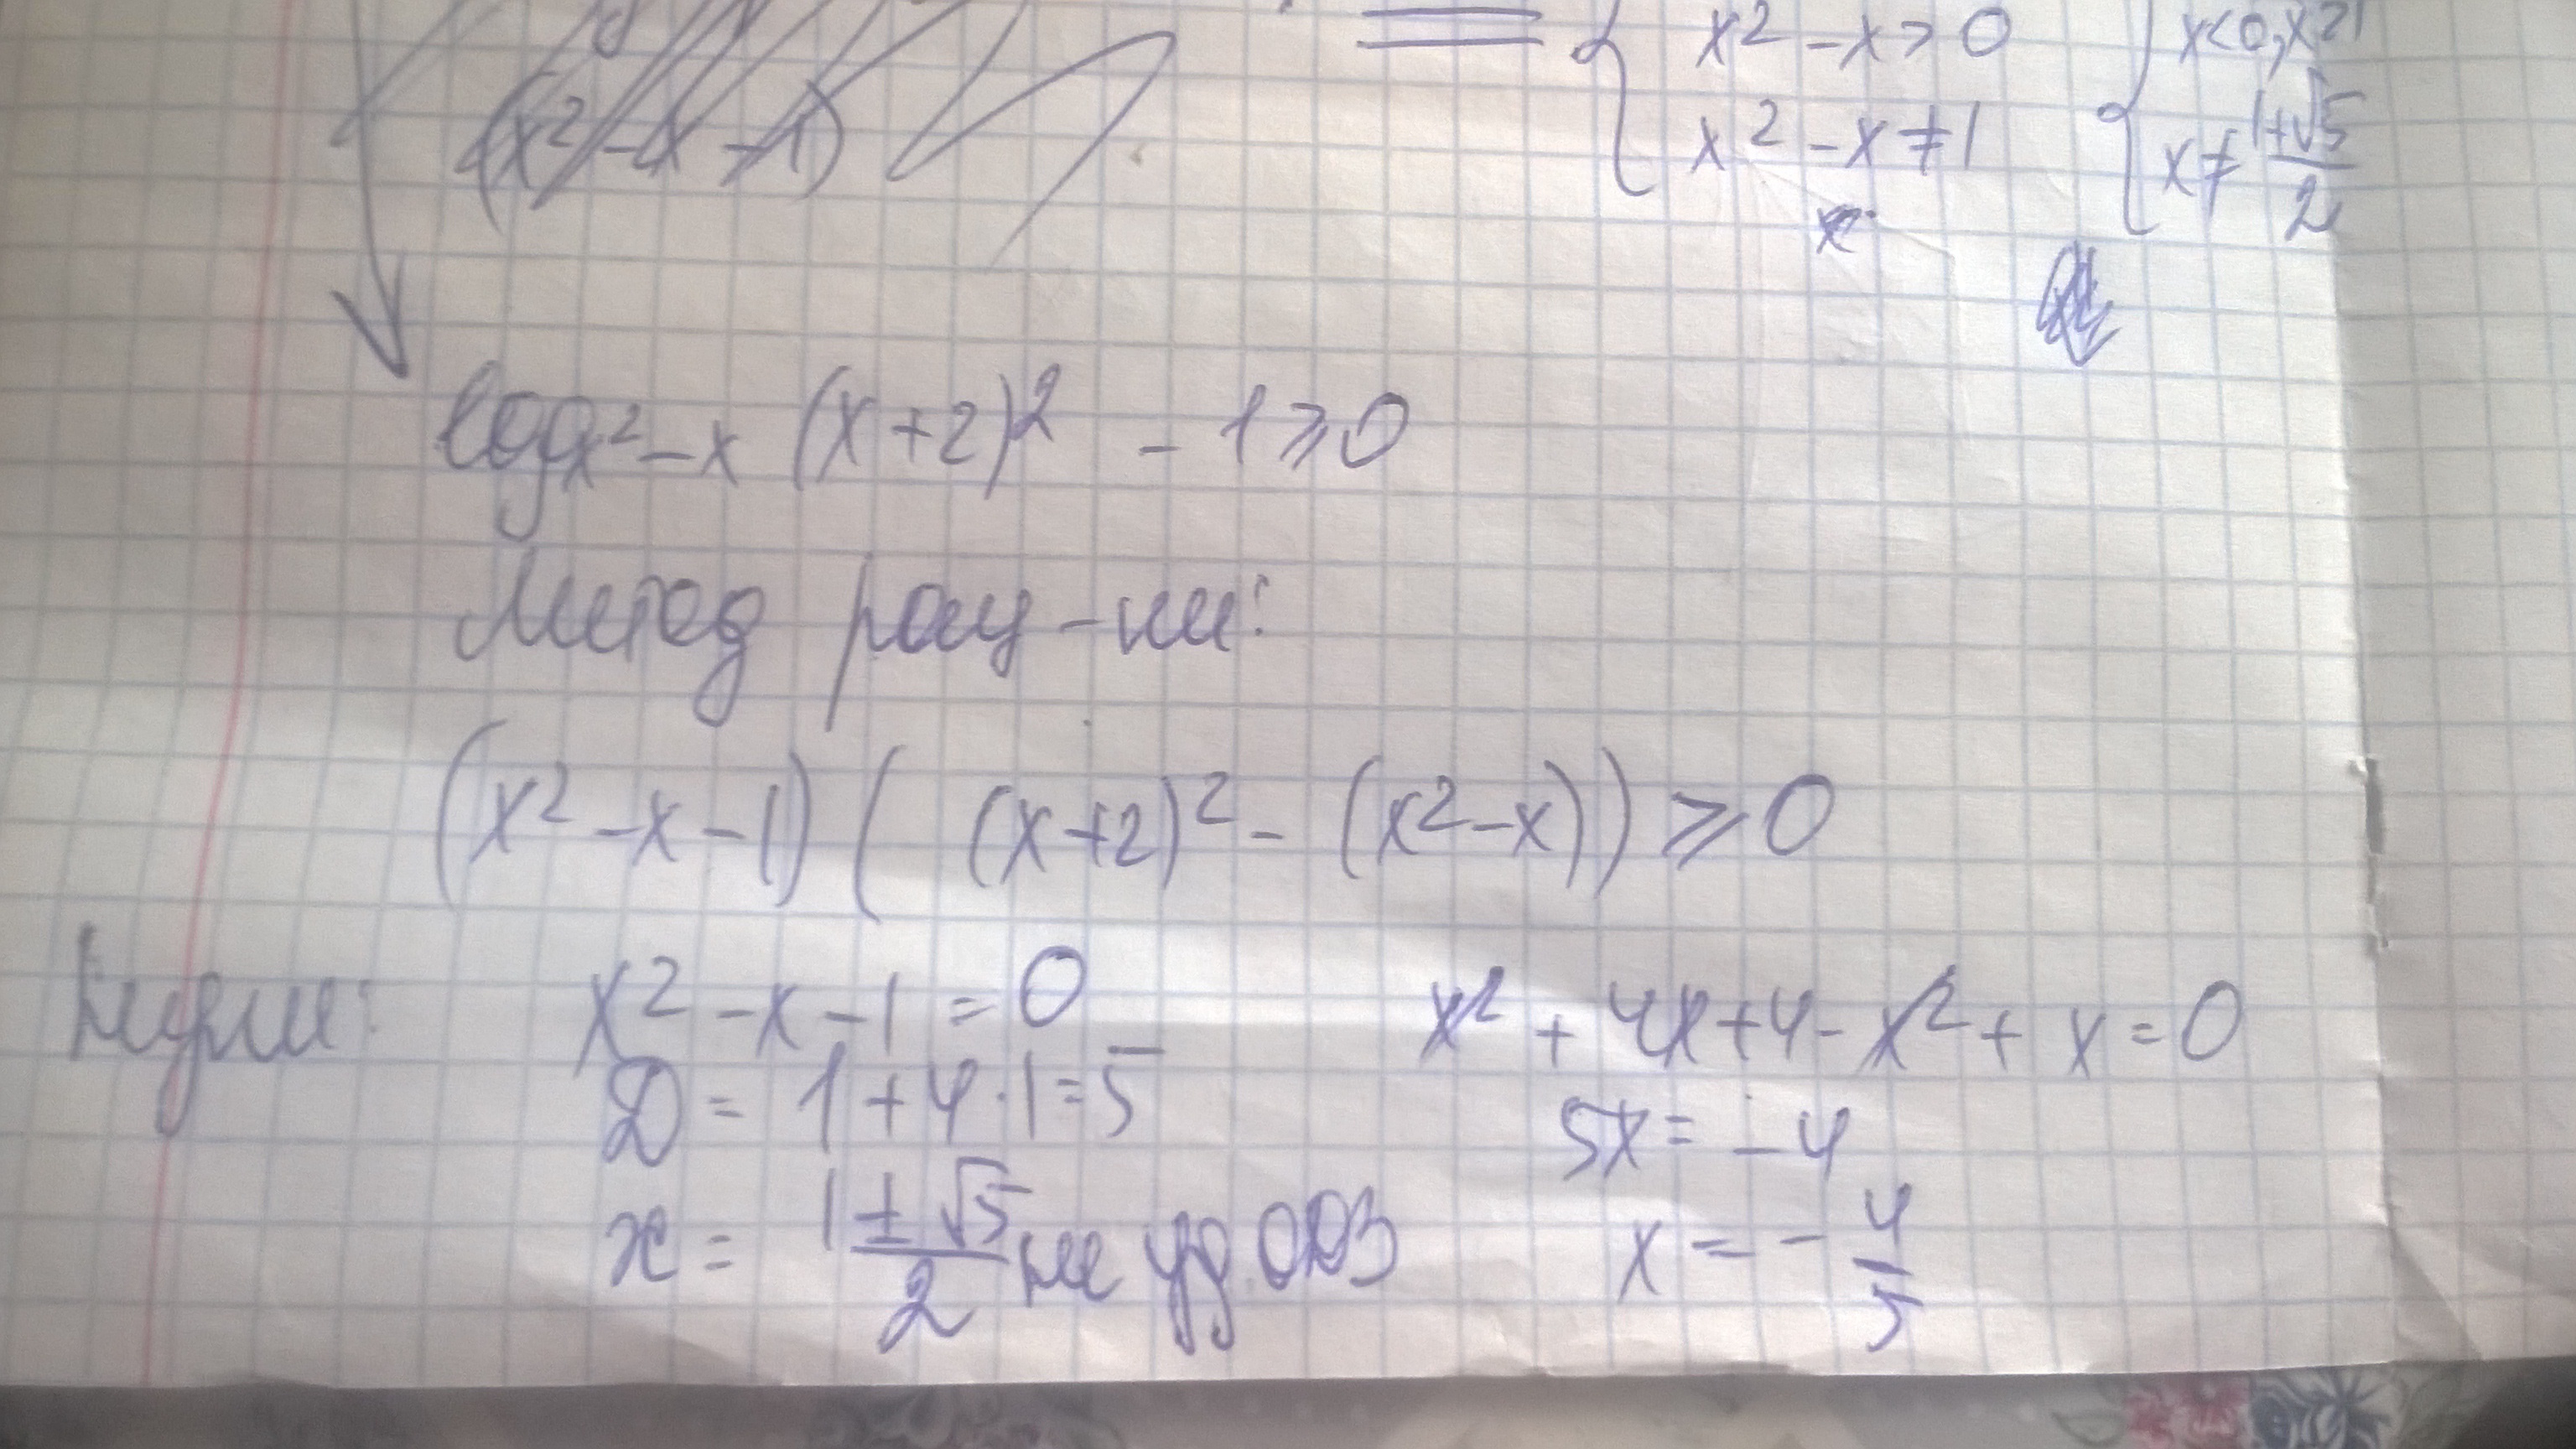 x² - x > 0
x < 0, x > 1
(x² - x - 1)
x² - x ≠ 1
x ≠ 1+√5/2
log x² - x (x+2)² - 1 ⩾ 0
Метод рац-ии:
(x² - x - 1)((x+2)² - (x² - x)) ⩾ 0
Нули:
x² - x - 1 = 0
x² + 4x + 4 - x² + x = 0
D = 1 + 4·1 = 5
5x = -4
x = 1±√5/2 не уд ОДЗ
x = -4/5